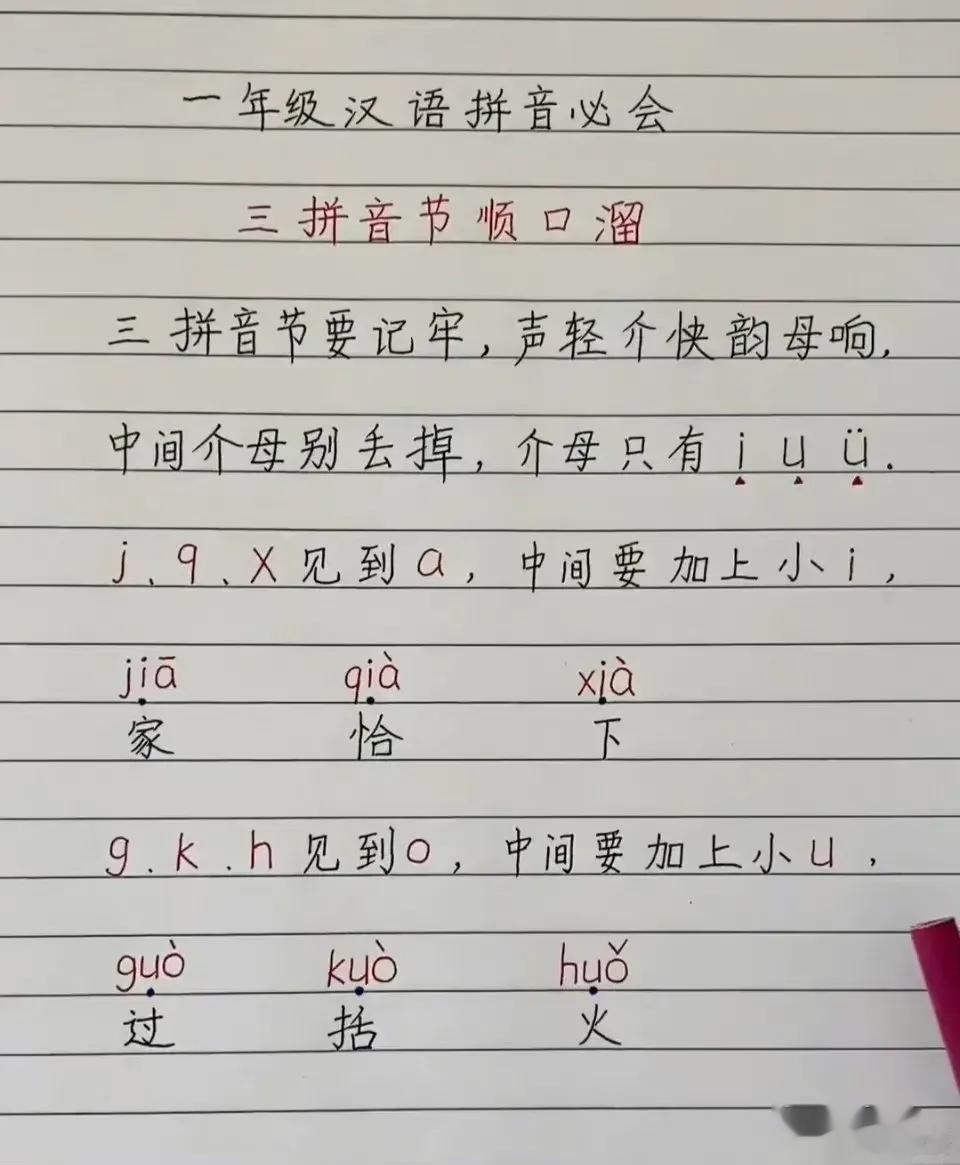 一年级汉语拼音必会
三拼音节顺口溜
三拼音节要记牢,声轻介快韵母响.
中间介母别丢掉,介母只有 i u ü.
j、q、x见到a,中间要加上小i,
jiā qià xià
家 恰 下
g.k.h见到o,中间要加上小u,
guò kuò huǒ
过 括 火